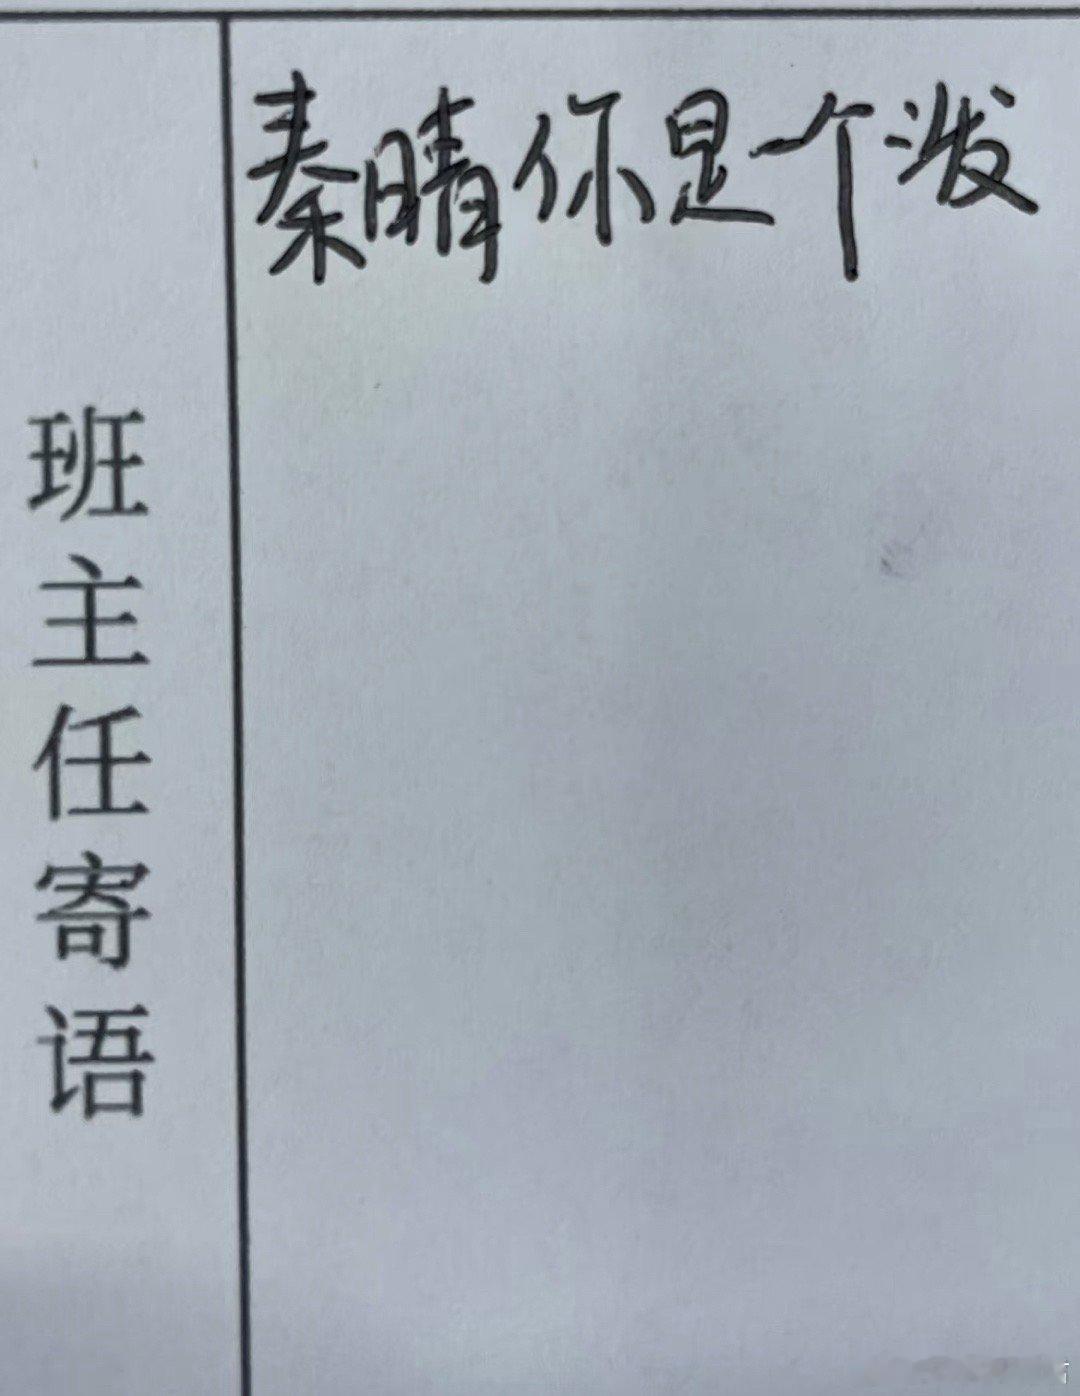 秦晴你是一个泼
班主任寄语